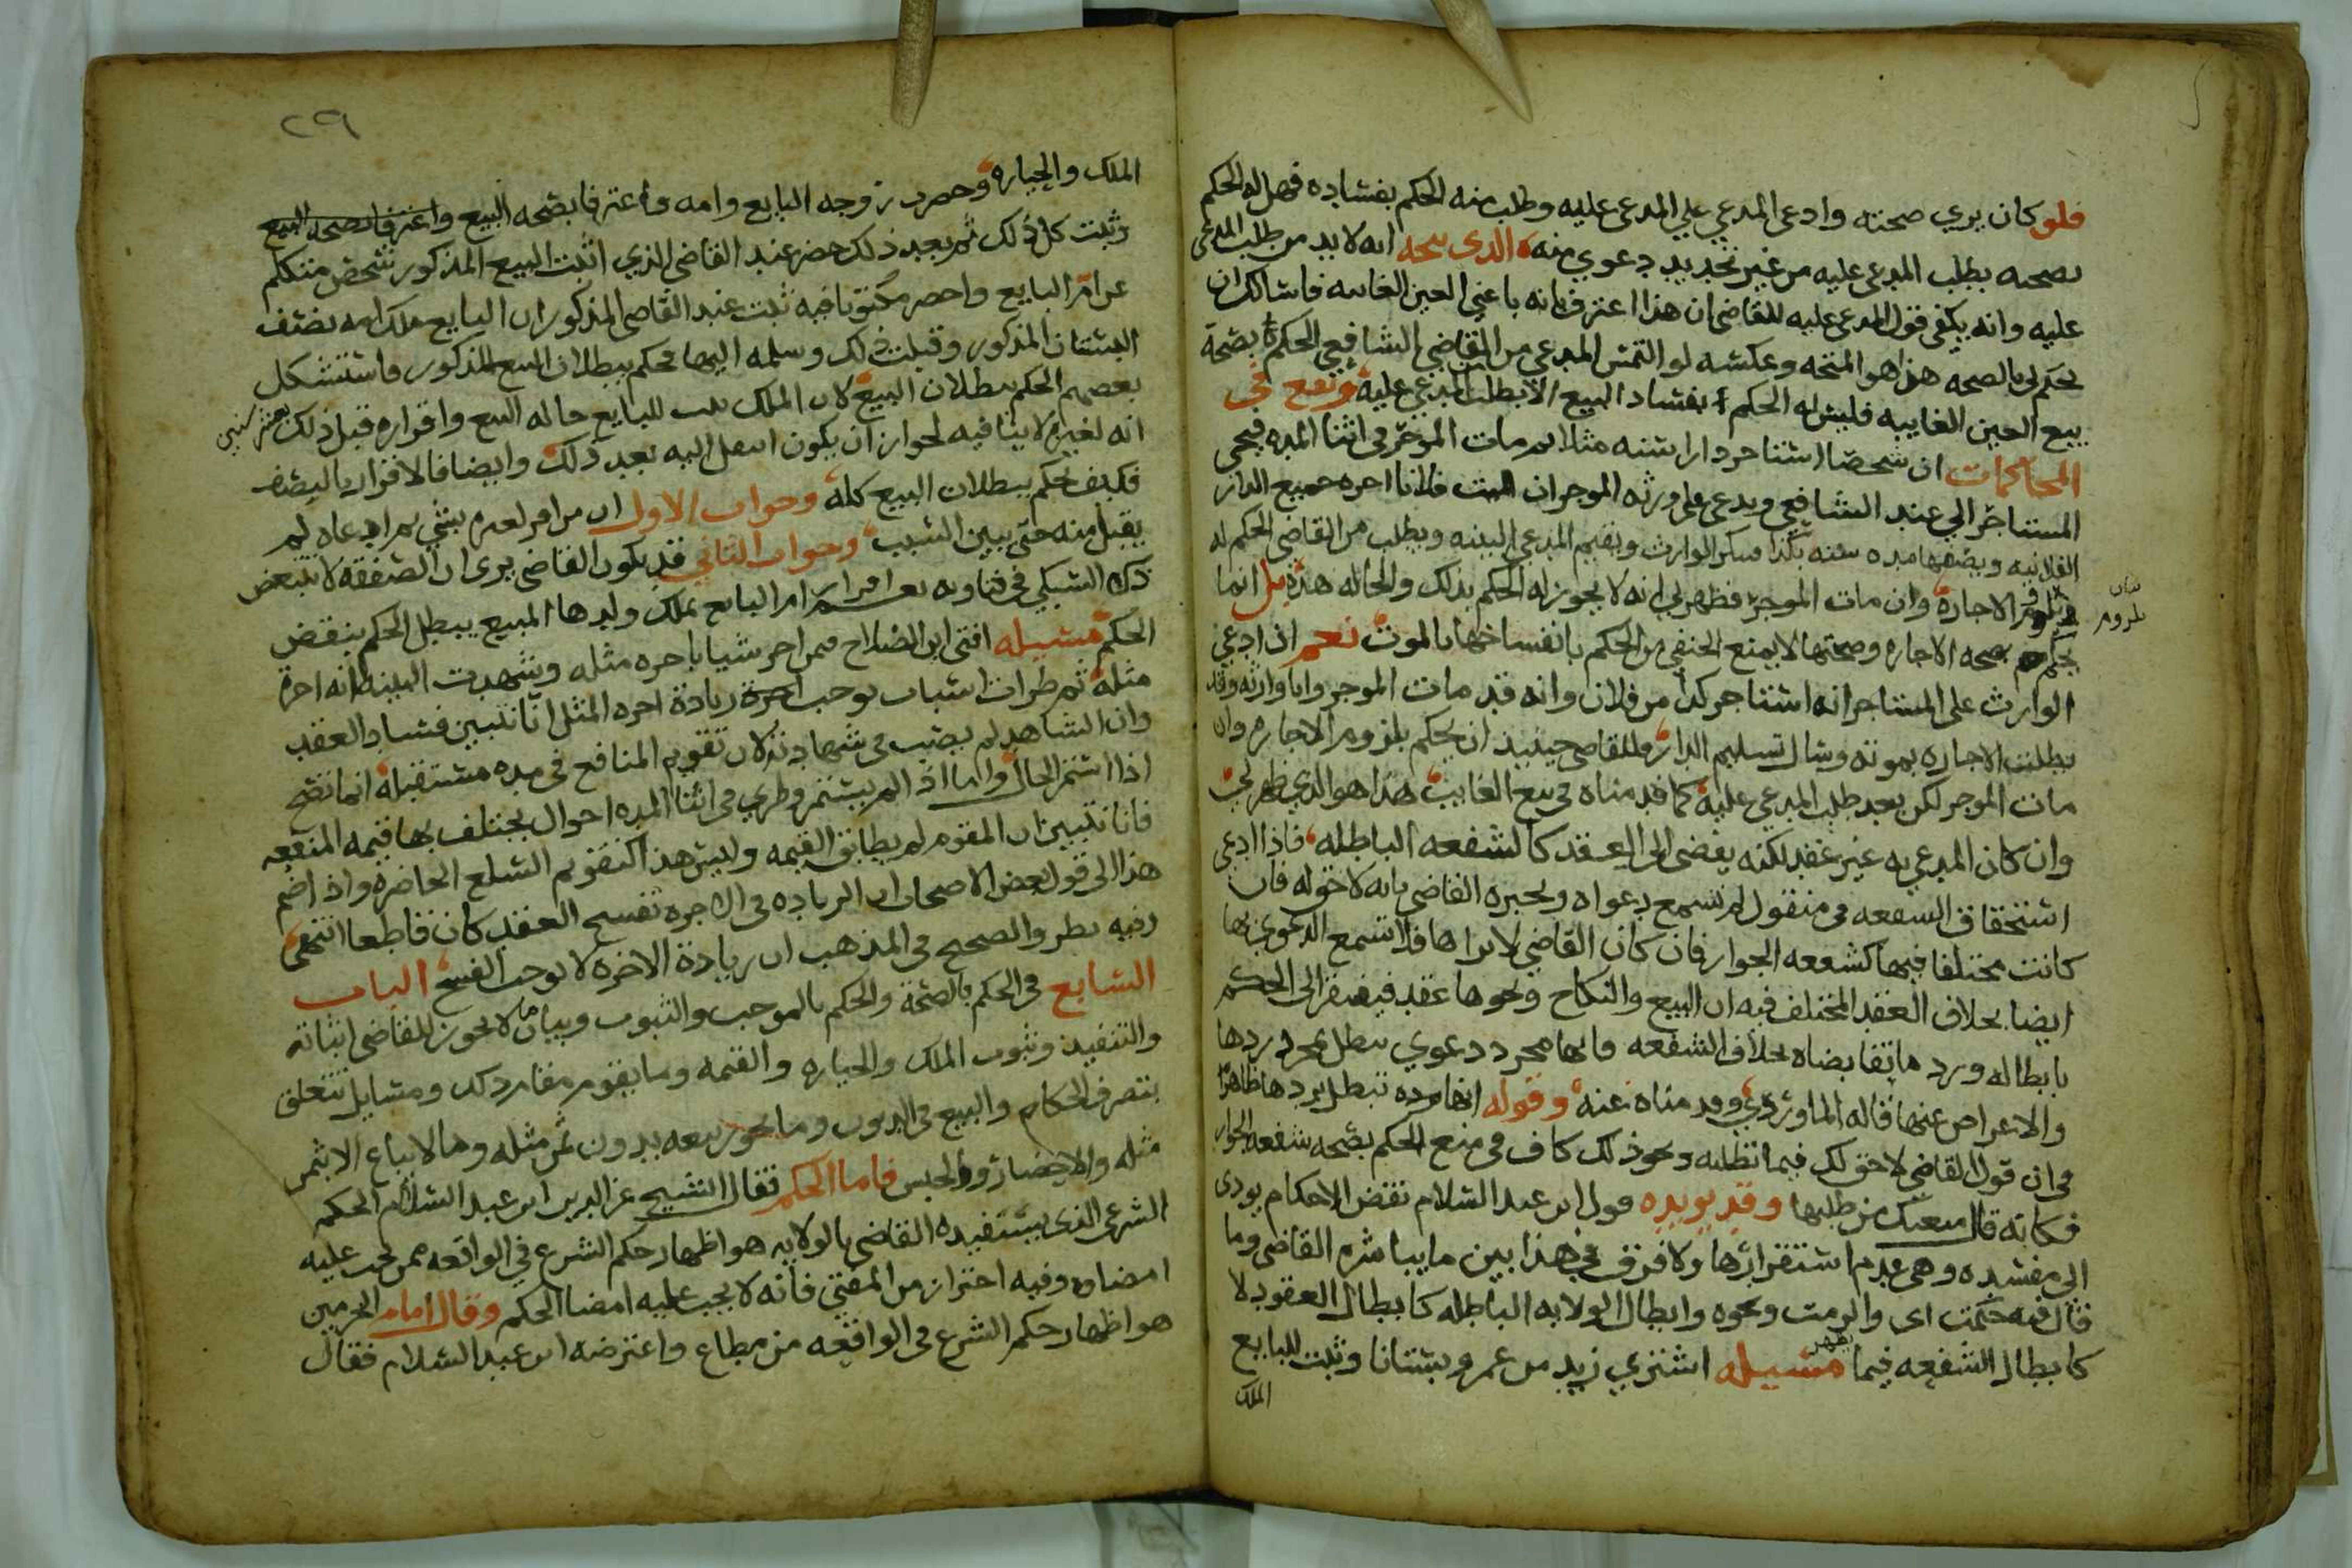 فلو كان يري صحته وادعى المدعي علي المدعى عليه وطلب منه الحكم بفساده فهل له الحكم
بصحته بطلب المدعى عليه من غير تجديد دعوي منه الذى يتجه انه لا بد من طلب المدعى
عليه وانه يكفى قول المدعى عليه للقاضى ان هذا اعترف بانه باعني العين الغايبه فاسالك ان
تحكم لي بالصحه هذا هو المتجه وعكسه لو التمس المدعي من القاضي الشافعي الحكم بصحة
بيع العين الغايبه فليس له الحكم بفساد البيع الا بطلب المدعي عليه ويقع فى
المحاكمات ان شخصا استاجر دارا سنه مثلا ثم مات الموجر في اثنا المده فيجى
المستاجر الي عند الشافعي ويدعى على ورثه الموجر ان الميت فلانا اجره جميع الدار
الفلانيه ويصفها مده سنه بكذا فينكر الوارث ويقيم المدعي البينه ويطلب من القاضى الحكم له
بلزوم الاجارة وان مات الموجر فظهر لي انه لا يجوز له الحكم بذلك والحاله هذه بل انما
يحكم بصحه الاجاره وصحتها لا يمنع الحنفي من الحكم بانفساخها بالموت نعم ان ادعي
الوارث على المستاجر انه استاجر كذا من فلان وانه قد مات الموجر وانا وارثه وقد
بطلت الاجاره بموته وسال تسليم الدار فللقاضى حينيذ ان يحكم بلزوم الاجاره وان
مات الموجر لكن بعد طلب المدعي عليه كما قدمناه في بيع الغايب هذا هو الذي ظهر لي
وان كان المدعي به غير عقد لكنه يفضى الى العقد كالشفعه الباطله فاذا ادعى
استحقاق الشفعه فى منقول لم تسمع دعواه ويخبره القاضي بانه لا حق له فان
كانت مختلفا فيها كشفعه الجوار فان كان القاضي لا يراها فلا تسمع الدعوي بها
ايضا بخلاف العقد المختلف فيه ان البيع والنكاح ونحوها عقد فيفتقر الى الحكم
بابطاله ورد ما تقابضاه بخلاف الشفعه فانها مجرد دعوي تبطل بمجرد ردها
والاعراض عنها قاله الماوردي وقد مناه عنه وقوله انها مرده تبطل بردها ظاهرا
في ان قول القاضي لا حق لك فيما تطلبه ونحو ذلك كاف في منع الحكم بصحه شفعه الجوار
فكانه قال منعتك من طلبها وقد يويده قول ابن عبد السلام نقض الاحكام يودى
الى مفسده وهى عدم استقرارها ولا فرق في هذا بين ما يباشره القاضي وما
قال فيه حكمت اى والزمت ونحوه وابطال الولايه الباطله كابطال العقود لا
كابطال الشفعه فيما يظهر مسيله اشتري زيد من عمرو بستانا وثبت للبايع
الملك
بيان
بلزوم
٢٩
الملك والحيازه وحضرت زوجه البايع وامه واعترفا بصحه البيع واعترفا بصحه البيع
وثبت كل ذلك ثم بعد ذلك حضر عند القاضى الذي اثبت البيع المذكور شخص متكلم
عن ام البايع واحضر مكتوبا فيه ثبت عند القاضى المذكور ان البايع ملك امه نصف
البستان المذكور وقبلت ذلك وسلمه اليها فحكم ببطلان البيع المذكور فاستشكل
بعضهم الحكم ببطلان البيع لان الملك ثبت للبايع حاله البيع واقراره قبل ذلك بعشر سنين
انه لغيره لا ينافيه لجواز ان يكون انتقل اليه بعد ذلك وايضا فالاقرار بالنصف
فكيف يحكم ببطلان البيع كله وجواب الاول ان من اقر لغيره بشي ثم ادعاه لم
يقبل منه حتى يبين السبب وجواب الثاني قد يكون القاضى يرى ان الصفقه لا تتبعض
ذكره السبكي في فتاويه ام البايع بملك ولدها المبيع يبطل الحكم بنقض
الحكم مسيله افتى ابن الصلاح فيمن اجر شيا باجره مثله وشهدت البينه بانه اجرة
مثله ثم طرات اسباب توجب اجرة زيادة اجره المثل انا نتبين فساد العقد
وان الشاهد لم يصب فى شهادته لان تقويم المنافع في مده مستقبله انما تصح
اذا استمر الحال واما اذا لم يستمر وطري في اثنا المده احوال يختلف بها قيمه المنفعه
فانا نتبين ان المقوم لم يطابق القيمه وليس هذا كتقويم السلع الحاضره واذا ضم
هذا الى قول بعض الاصحاب ان الزياده فى الاجره تفسخ العقد كان قاطعا انتهى
وفيه نظر والصحيح فى المذهب ان زيادة الاجره لا توجب الفسخ الباب
السابع في الحكم بالصحة والحكم بالموجب والثبوت وبيان ما لا يجوز للقاضى اثباته
والتنفيذ وثبوت الملك والحيازه والقيمه وما يقوم مقام ذلك ومسايل تتعلق
بتصرف الحكام والبيع في الديون وما يجوز بيعه بدون ثمن مثله وما لا يباع الا بثمن
مثله والاحضار والحبس فاما الحكم فقال الشيخ عز الدين ابن عبد السلام الحكم
الشرعى الذى يستفيده القاضى بالولايه هو اظهار حكم الشرع في الواقعه ممن يجب عليه
امضاوه وفيه احتراز من المفتي فانه لا يجب عليه امضا الحكم وقال امام الحرمين
هو اظهار حكم الشرع فى الواقعه من مطاع واعترضه ابن عبد السلام فقال